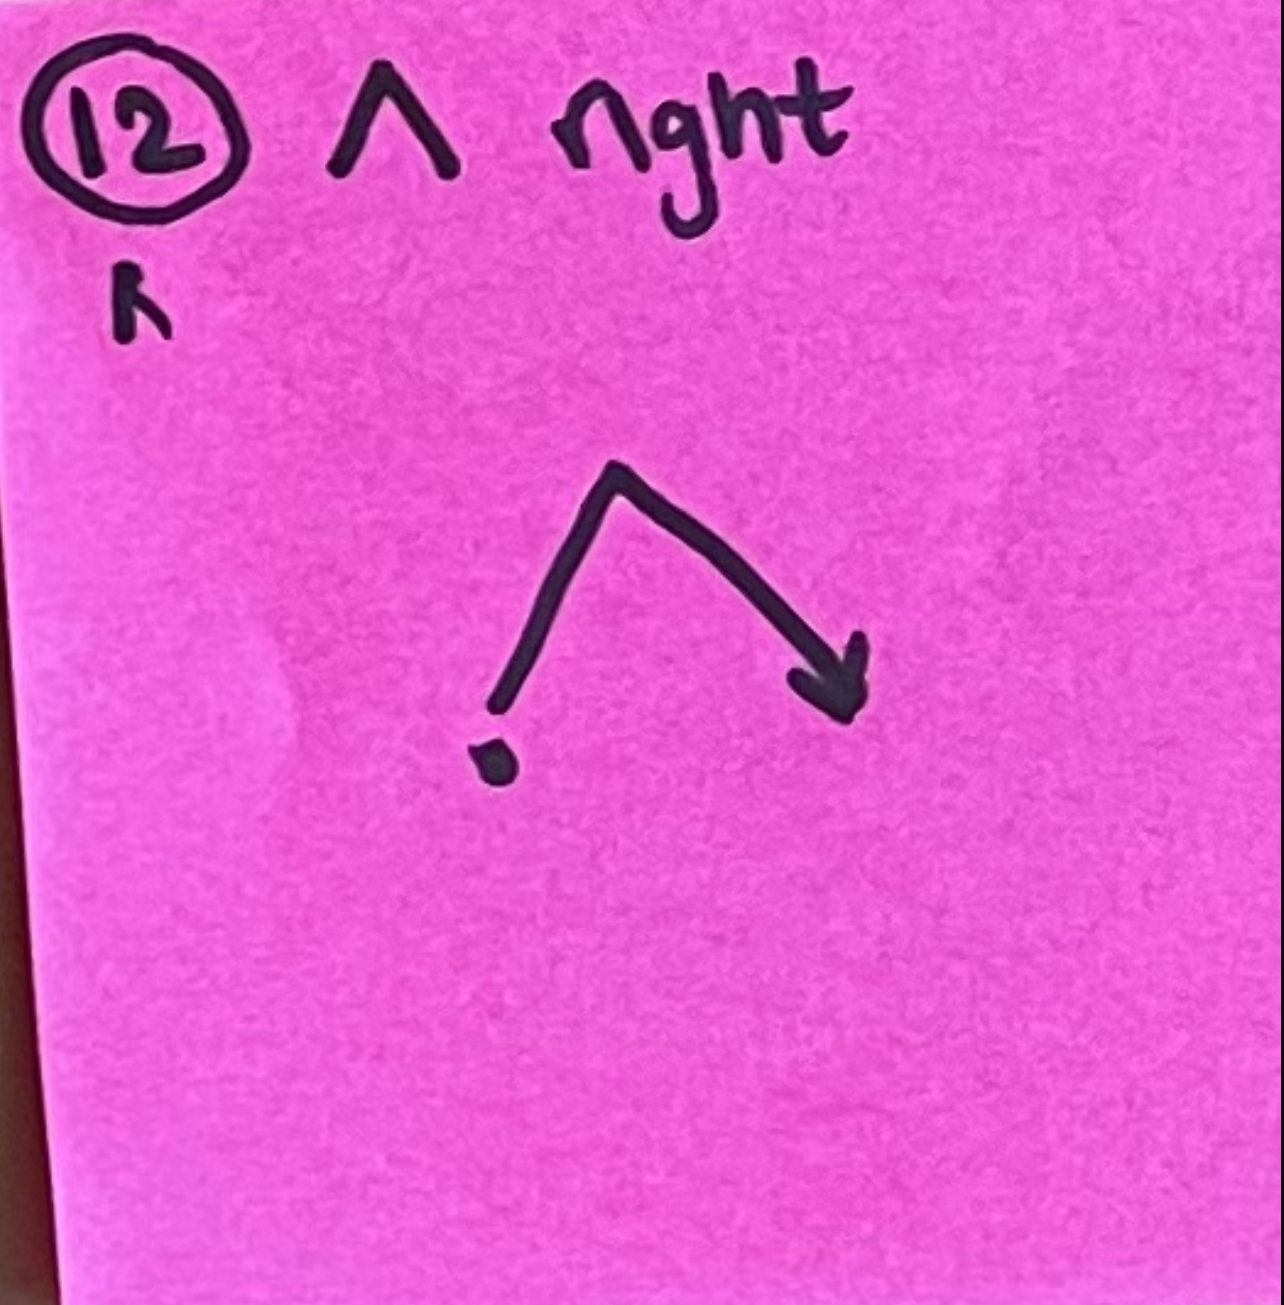 12 ∧ right
R